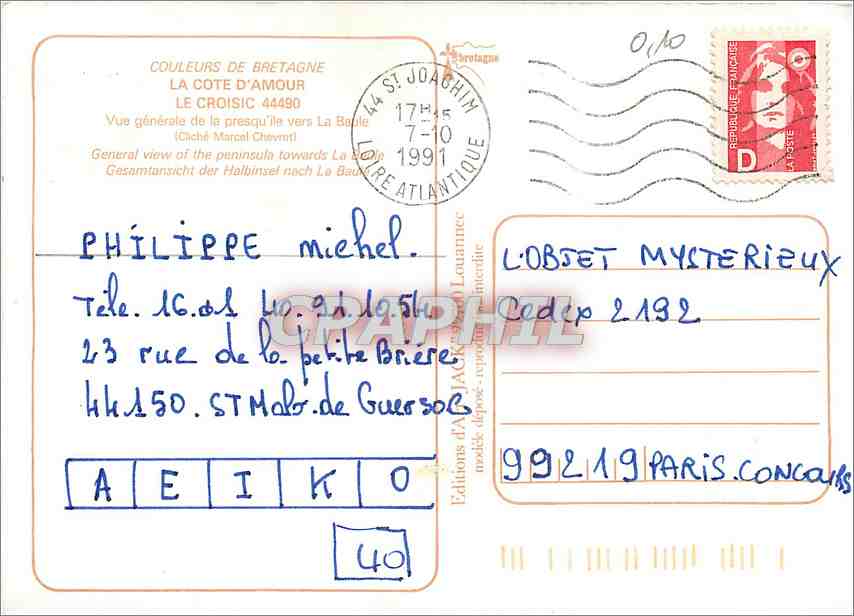 COULEURS DE BRETAGNE
LA COTE D'AMOUR
LE CROISIC 44490
Vue générale de la presqu'île vers La Baule
(Cliché Marcel Chevret)
General view of the peninsula towards La Baule
Gesamtansicht der Halbinsel nach La Baule
bretagne
44 ST JOACHIM
17H15
7-10
1991
LOIRE ATLANTIQUE
0,10
REPUBLIQUE FRANÇAISE
D
LA POSTE
PHILIPPE Michel.
Tele. 16.
23 rue de la petite Brière
44150. ST Malo. de Guersac
A E I K O
40
Editions d'Art JACK
Louannec
modèle déposé - reproduction interdite
L'OBJET MYSTERIEUX
Cedex 2192
99219 PARIS. CONCOURS
CPAPHIL